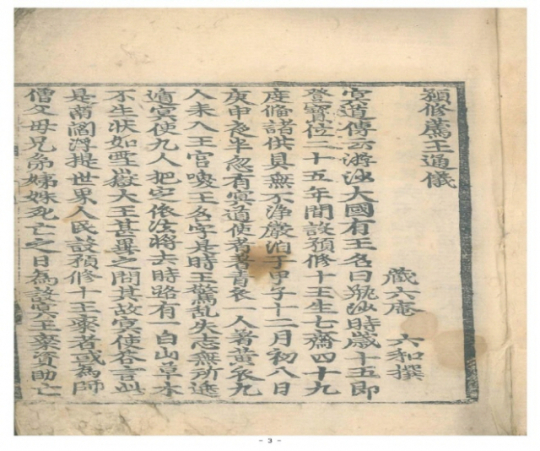 預修薦王通儀
藏六庵 六和撰
冥道傳云游沙大國有王名曰甁沙時歲十五即
登寶位二十五年間設預修十王生七齋四十九
度修諸供具無不淨嚴洎丁甲子十二月初八日
庚申夜半忽有冥道使者着青衣一人着黃衣九
人來入王宮喚王名字是時王驚乱失志無所逃
適冥使九人把定依法將去時路有一白山草木
不生狀如雪嶽大王甚異之問其故冥使答言此
是南閻浮提世界人民設預修十王齋者或爲師
僧父母兄弟姊妹死亡之日爲設冥王齋資助亡
- 3 -